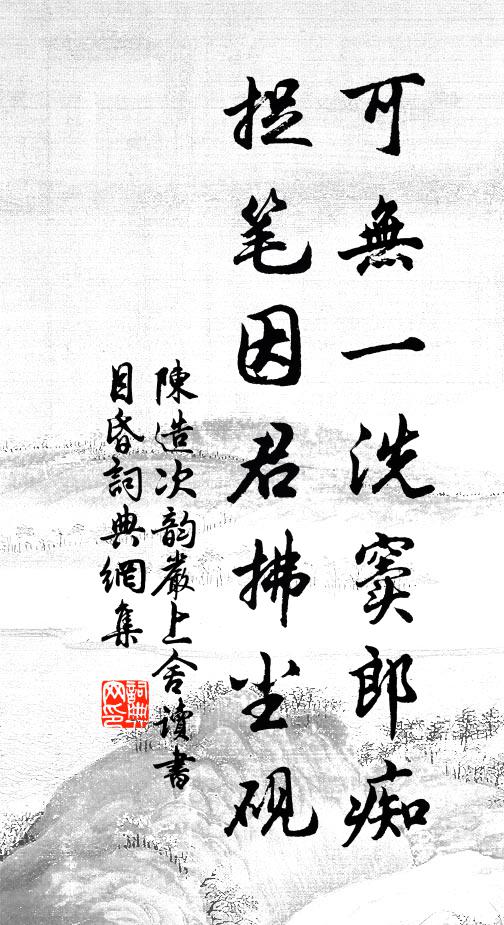 可無一洗竇郎痴
捉笔因君拂尘砚
陳造次韵嚴上舍讀書
目昏詞典網集
詞典网印